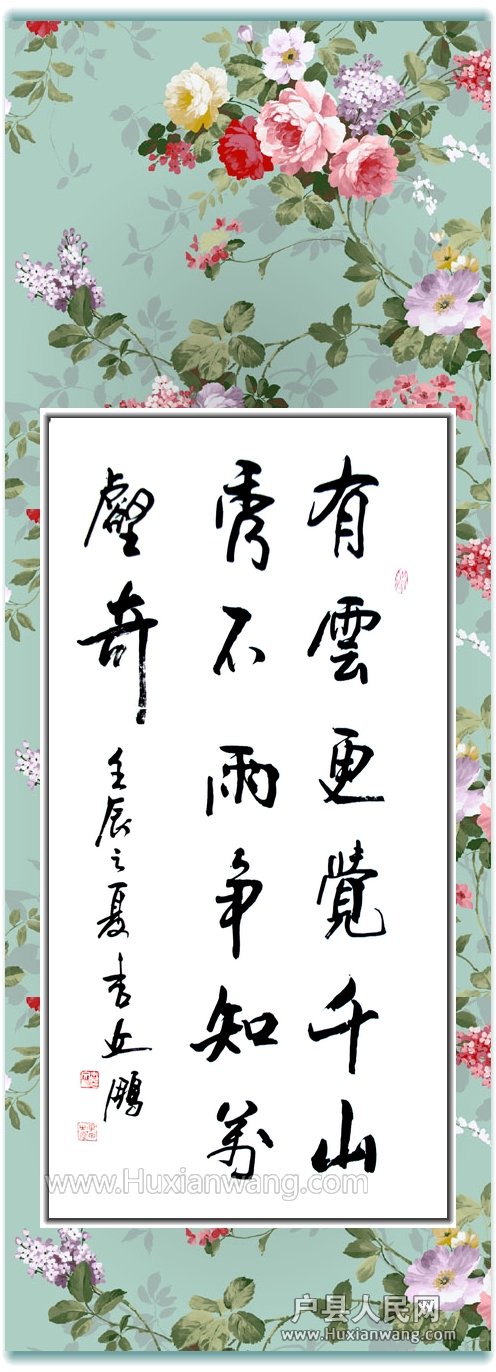 有雲更覺千山
秀不雨争知萬
壑奇
壬辰之夏 鵬
www.Huxianwang.com
户县人民网
www.Huxianwang.com